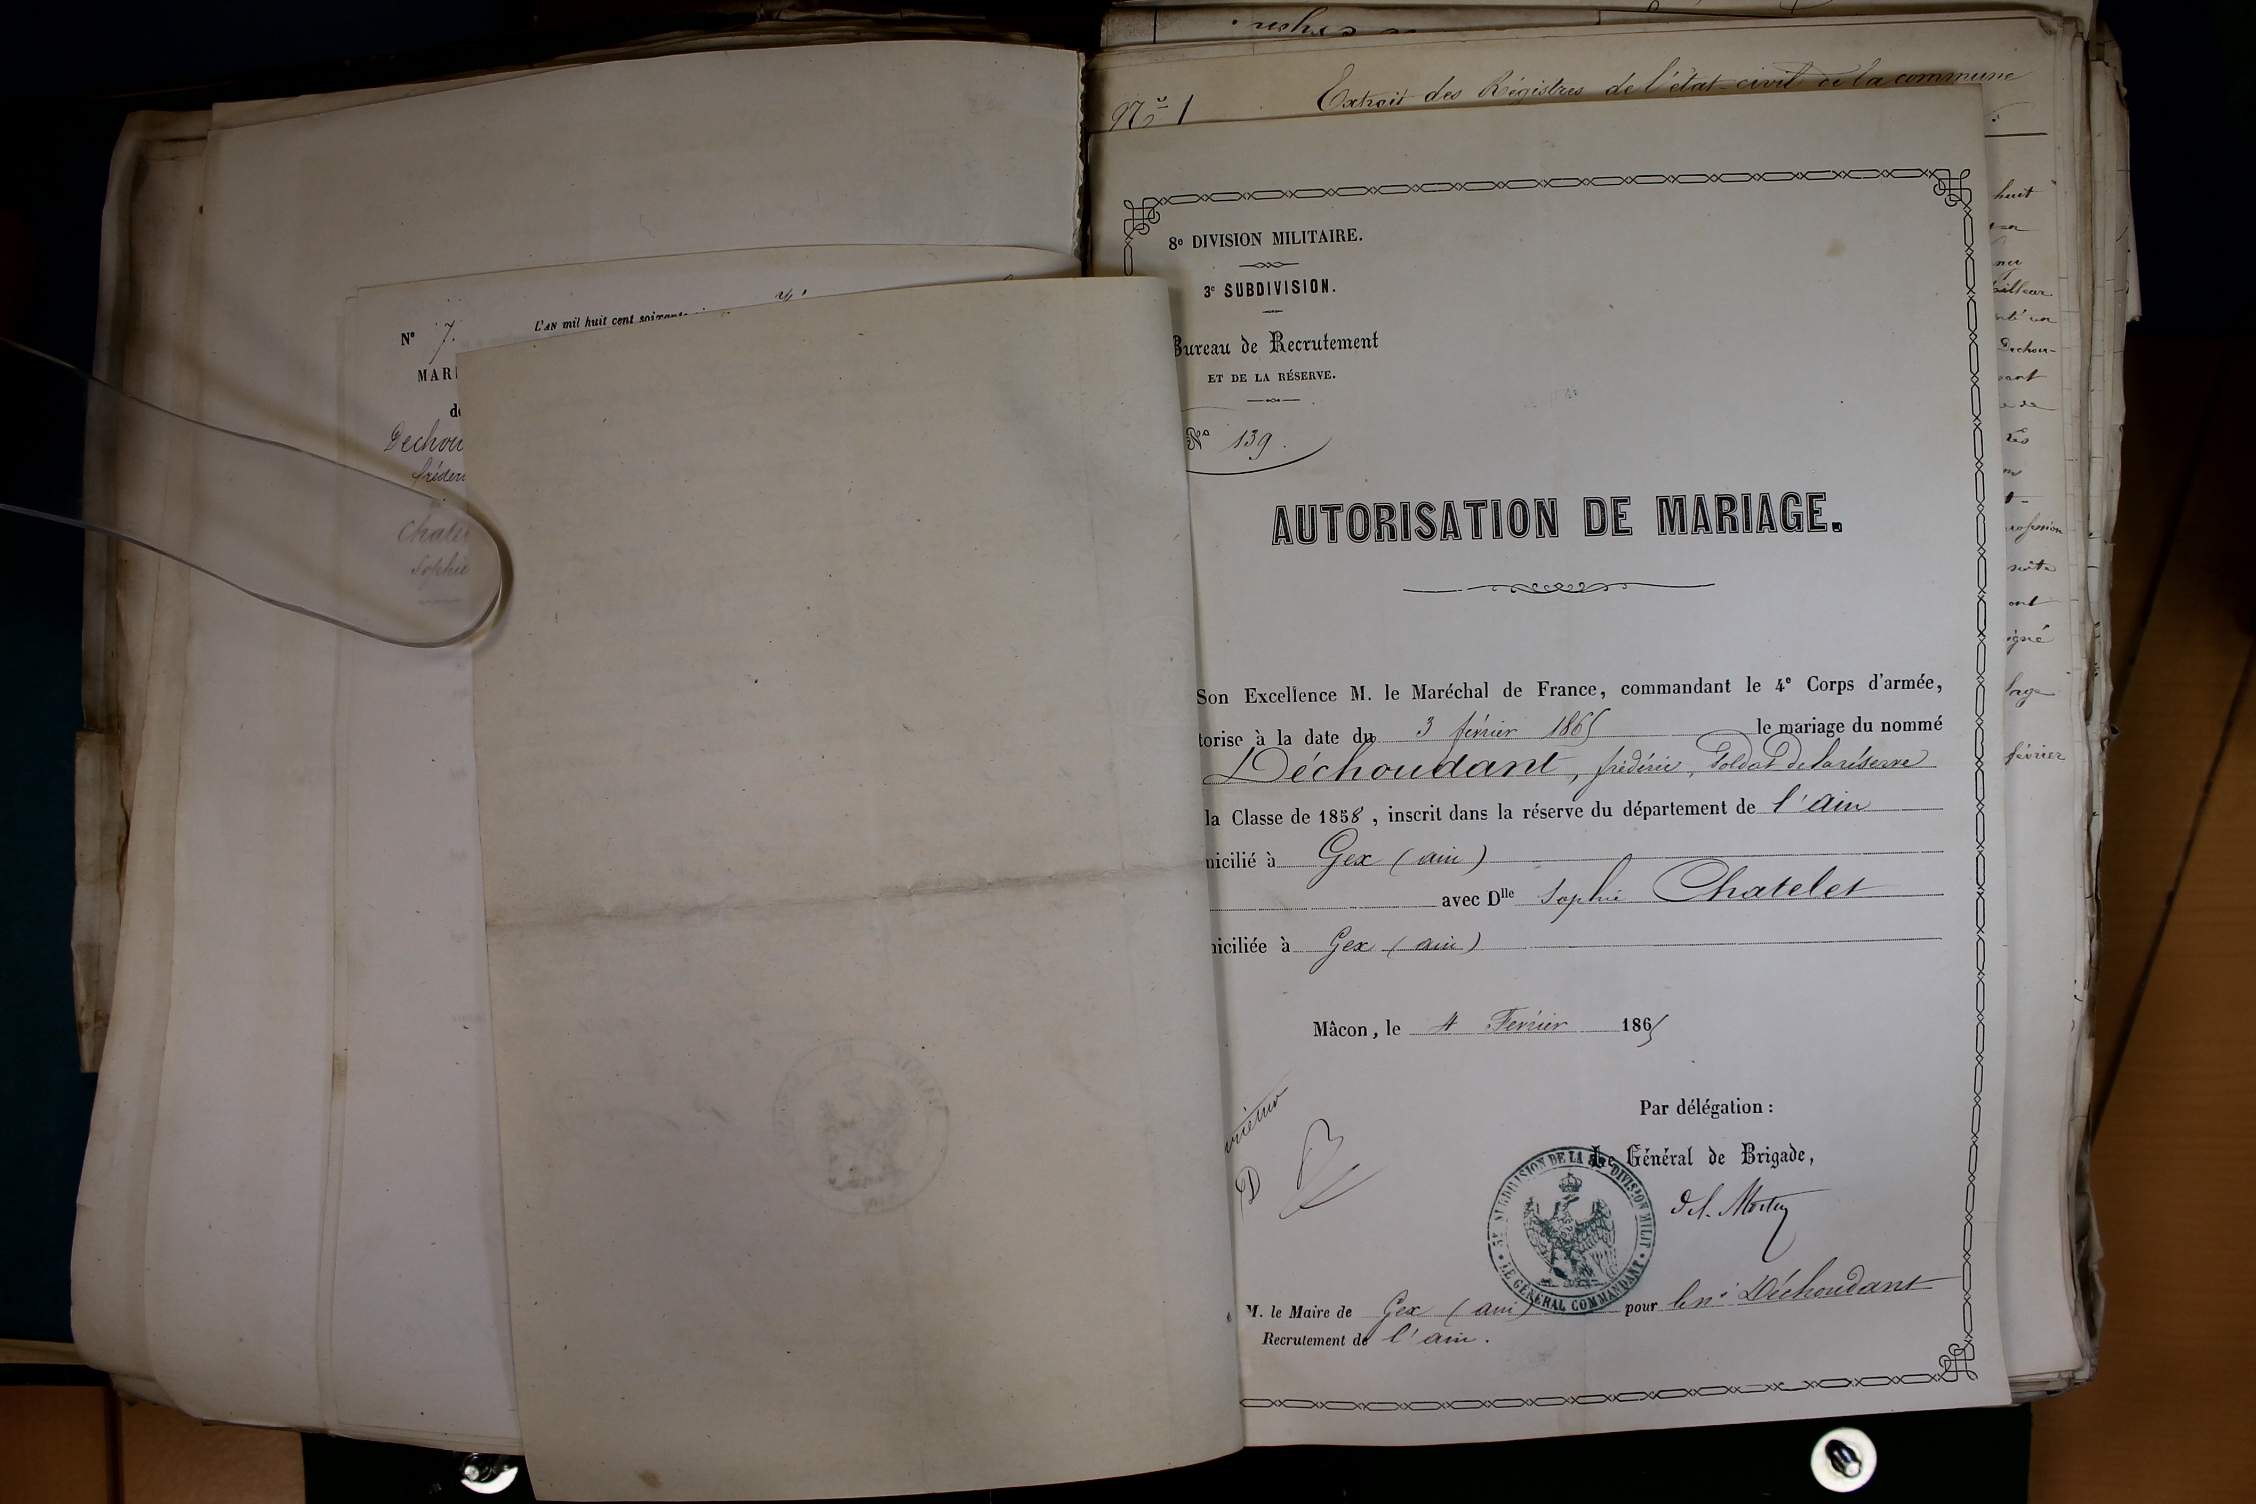 N° 7.
L'AN mil huit cent soixante
MARI
de
Dechou
fréderi
Chate
Sophie
N° 1 Extrait des Régistres de l'état-civil de la commune
8e DIVISION MILITAIRE.
3e SUBDIVISION.
Bureau de Recrutement
ET DE LA RÉSERVE.
N° 139.
AUTORISATION DE MARIAGE.
Son Excellence M. le Maréchal de France, commandant le 4e Corps d'armée,
torise à la date du 3 février 1865 le mariage du nommé
Déchoudant, frédéric, Soldat De la réserve
la Classe de 1858, inscrit dans la réserve du département de l'ain
nicilié à Gex (ain)
avec Dlle Sophie Chatelet
niciliée à Gex (ain)
Mâcon, le 4 Fevrier 1865
Par délégation :
Le Général de Brigade,
3e SUBDIVISION DE LA 8e DIVISION MILIT
LE GÉNÉRAL COMMANDANT
M. le Maire de Gex (ain) pour le né Déchoudant
Recrutement de l'ain.
huit
Dechou-
rofession
suite
ont
igné
février